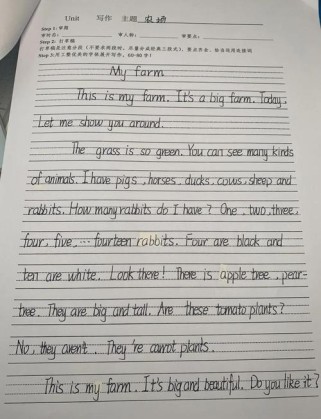 Unit 写作 主题 农场
Step 1: 审题
审时态: 审人称: 审要点:
Step 2: 打草稿
My farm
This is my farm. It's a big farm. Today,
Let me show you around.
The grass is so green. You can see many kinds
of animals. I have pigs, horses, ducks, cows, sheep and
rabbits. How many rabbits do I have? One, two, three,
four, five, ... fourteen rabbits. Four are black and
ten are white. Look there! There is apple tree, pear-
tree. They are big and tall. Are these tomato plants?
No, they aren't. They're carrot plants.
This is my farm. It's big and beautiful. Do you like it?